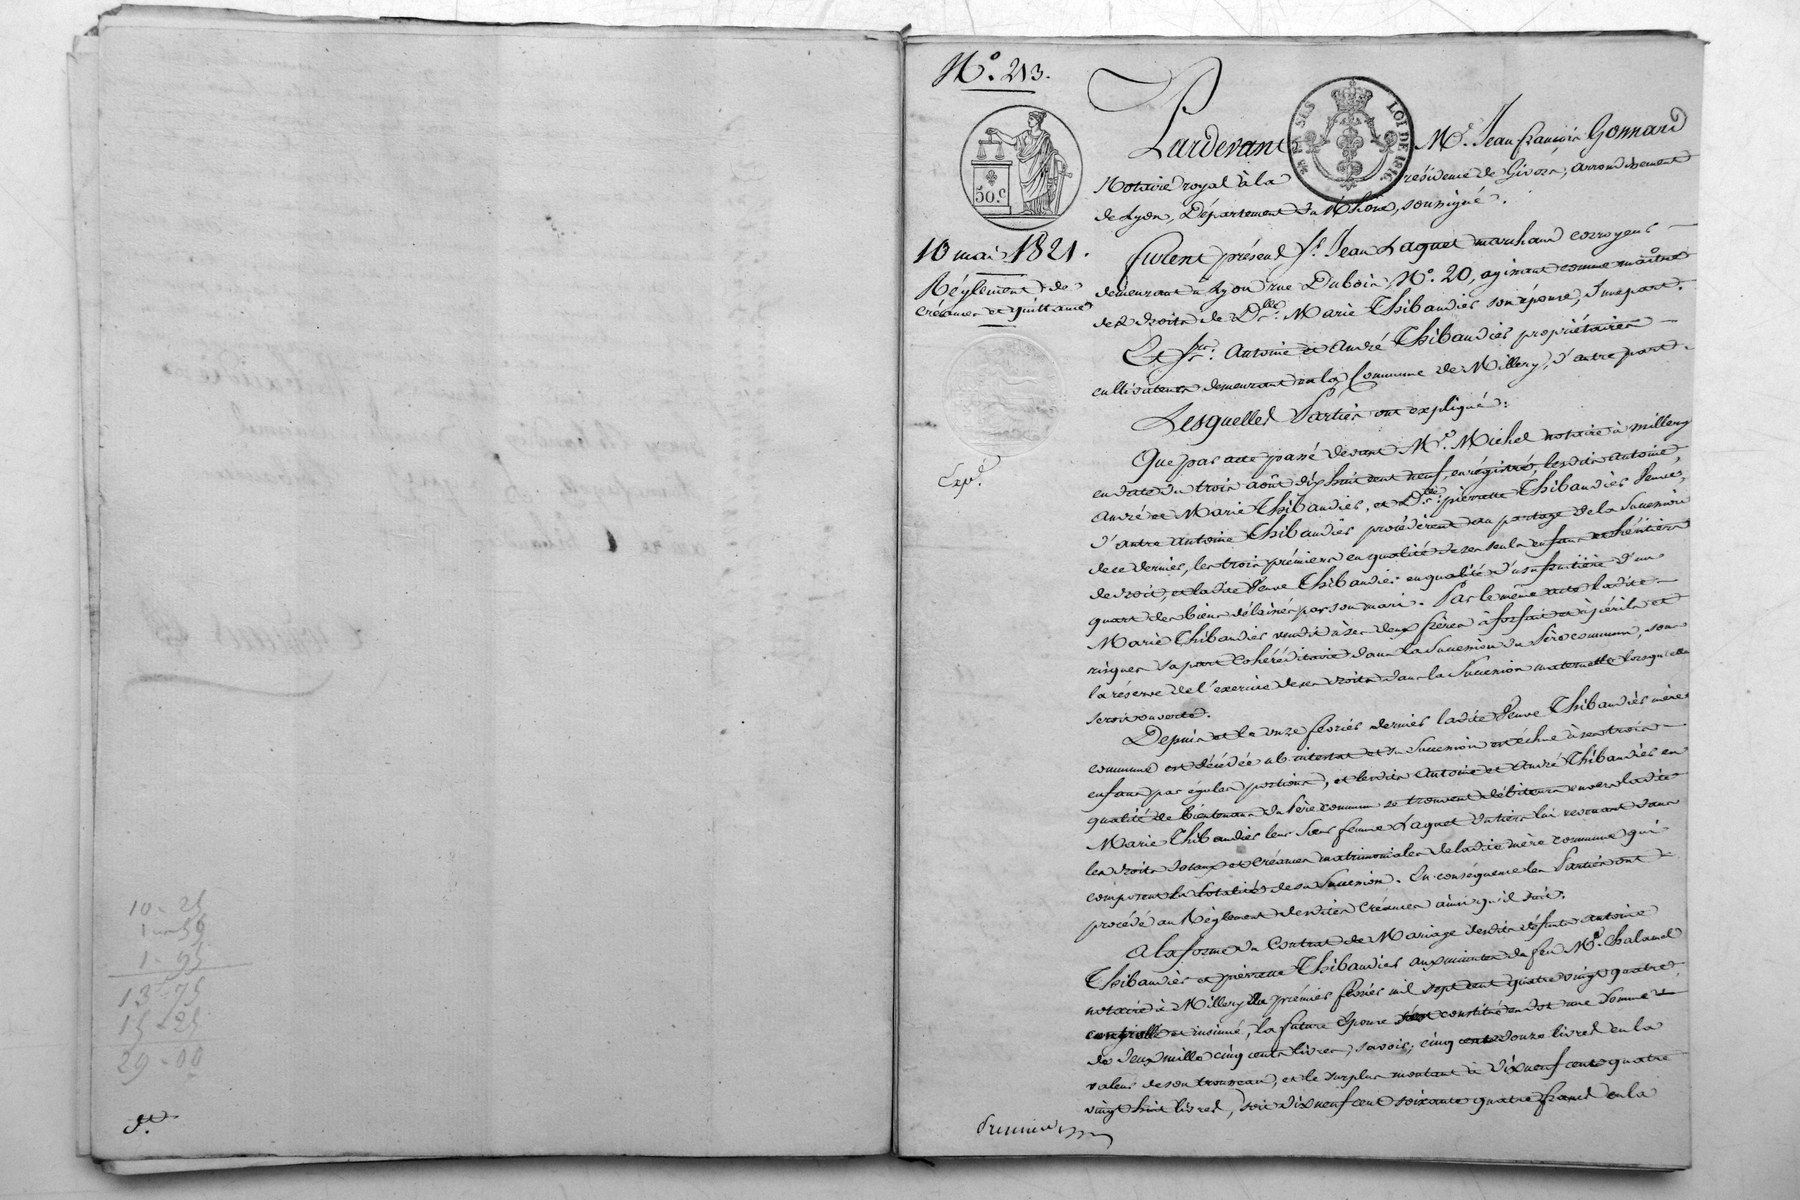 10 - 25
1 - 59
1 - 95
13 - 75
15 - 25
29 - 00
N.º 213.
50.C
10 mai 1821.
Réglement de
créances et quittance
Exp.é
Pardevant M.e Jean françois Gonnard
SES LOI DE 1816
Notaire royal à la résidence de Givors, arrondissement
de Lyon, Département du Rhône, soussigné.
furent présens S.r Jean Laquet marchand corroyeur
demeurant à Lyon rue Dubois, N.º 20, agissant comme maître
des droits de D.lle Marie Thibaudier son épouse, d'une part.
Et S.rs Antoine et André Thibaudier propriétaires
cultivateurs demeurant en la Commune de Millery, d'autre part.
Lesquelles Parties ont expliqué:
Que par acte passé devant M.e Michel notaire à Millery
en date du trois août dix huit cent neuf, enrégistré, lesdits Antoine,
André et Marie Thibaudier, et D.lle pierrette Thibaudier Veuve,
d'autre Antoine Thibaudier procédèrent au partage de la Succession
de ce dernier, les trois prémiers en qualité de ses seuls enfans et héritiers
de droit, et ladite Veuve Thibaudier en qualité d'usufruitière d'un
quart des biens délaissés par son mari. Par le même acte ladite
Marie Thibaudier vendit à ses deux frères à forfait et à périls et
risques sa part cohéréditaire dans la Succession du Père commun, sous
la réserve de l'exercice de ses droits dans la Succession maternelle lorsqu'elle
seroit ouverte.
Depuis et le onze février dernier ladite Veuve Thibaudier mère
commune est décédée ab intestat et sa Succession est échue à ses trois
enfans par égales portions, et lesdits Antoine et André Thibaudier en
qualité de bientenans du Père commun se trouvent débiteurs envers ladite
Marie Thibaudier leur Sœur femme Laquet du tiers lui revenant dans
les droits dotaux et créances matrimoniales de ladite mère commune qui
composent la totalité de sa Succession. En conséquence les Parties ont
procédé au Règlement desdites Créances ainsi qu'il suit.
A la forme du Contrat de Mariage desdits défunts Antoine
Thibaudier et pierrette Thibaudier aux minutes de feu M.e Chalamel
notaire à Millery du prémier février mil sept cent quatre vingt quatre
controllé et insinué, la future Epouse s'est constitué en dot une somme
de deux mille cinq cents livres, savoir; cinq cents douze livres en la
valeur de son trousseau, et le surplus montant à dix neuf cents quatre
vingt huit livres, soit dix neuf cent soixante quatre francs en la